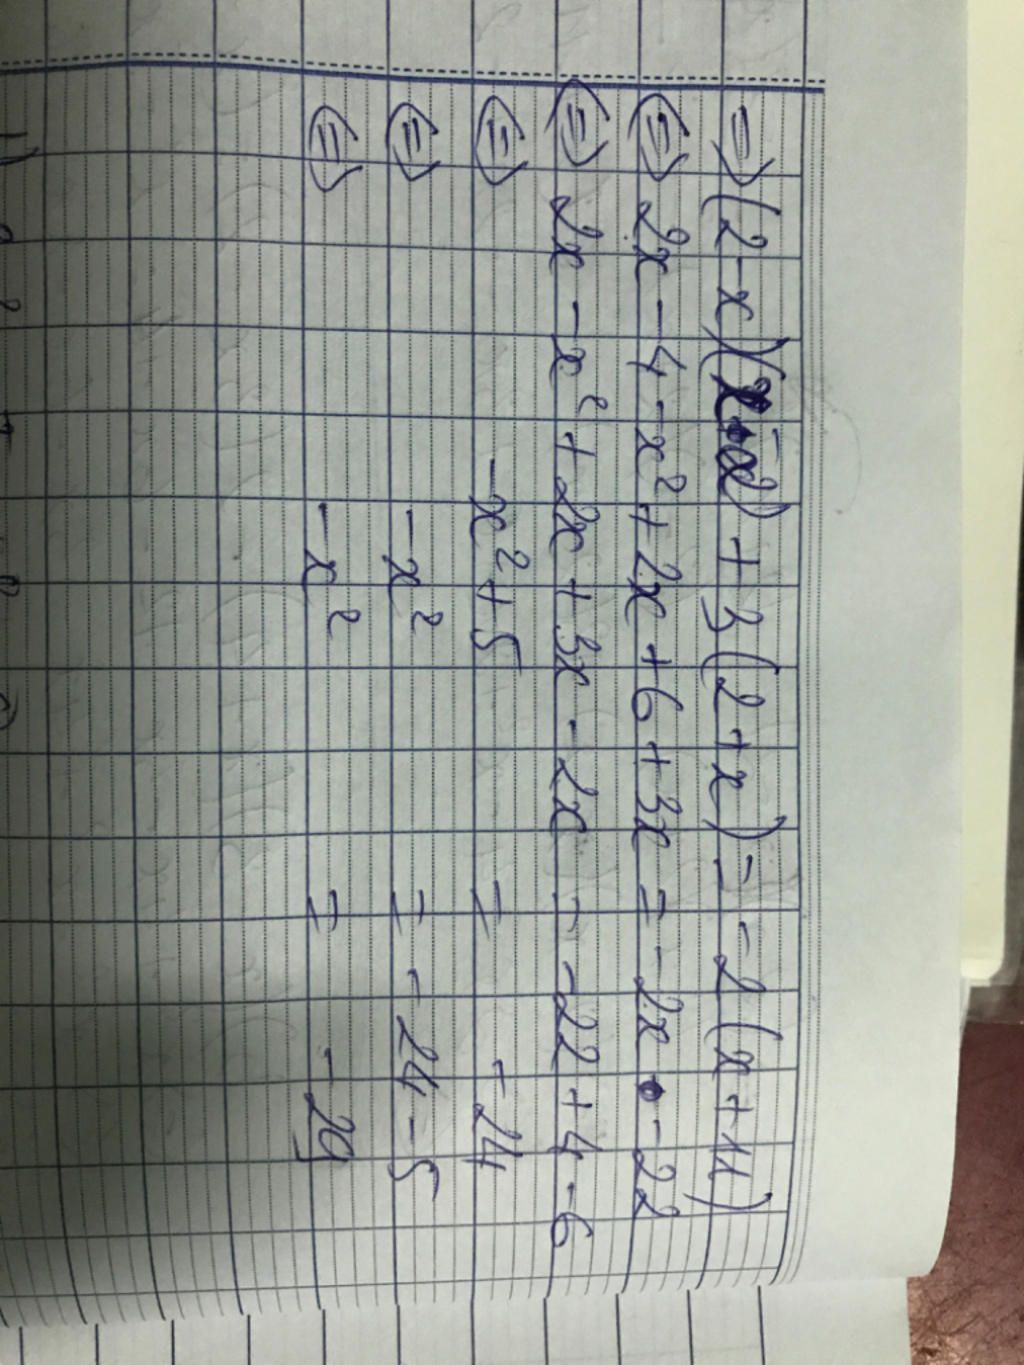 => (2-x)(x-2) + 3(2+x) = -2(x+11)
<=> 2x - 4 - x² + 2x + 6 + 3x = -2x - 22
<=> 2x - x² + 2x + 3x - 2x = -22 + 4 - 6
<=> -x² + 5 = -24
<=> -x² = -24 - 5
<=> -x² = -29